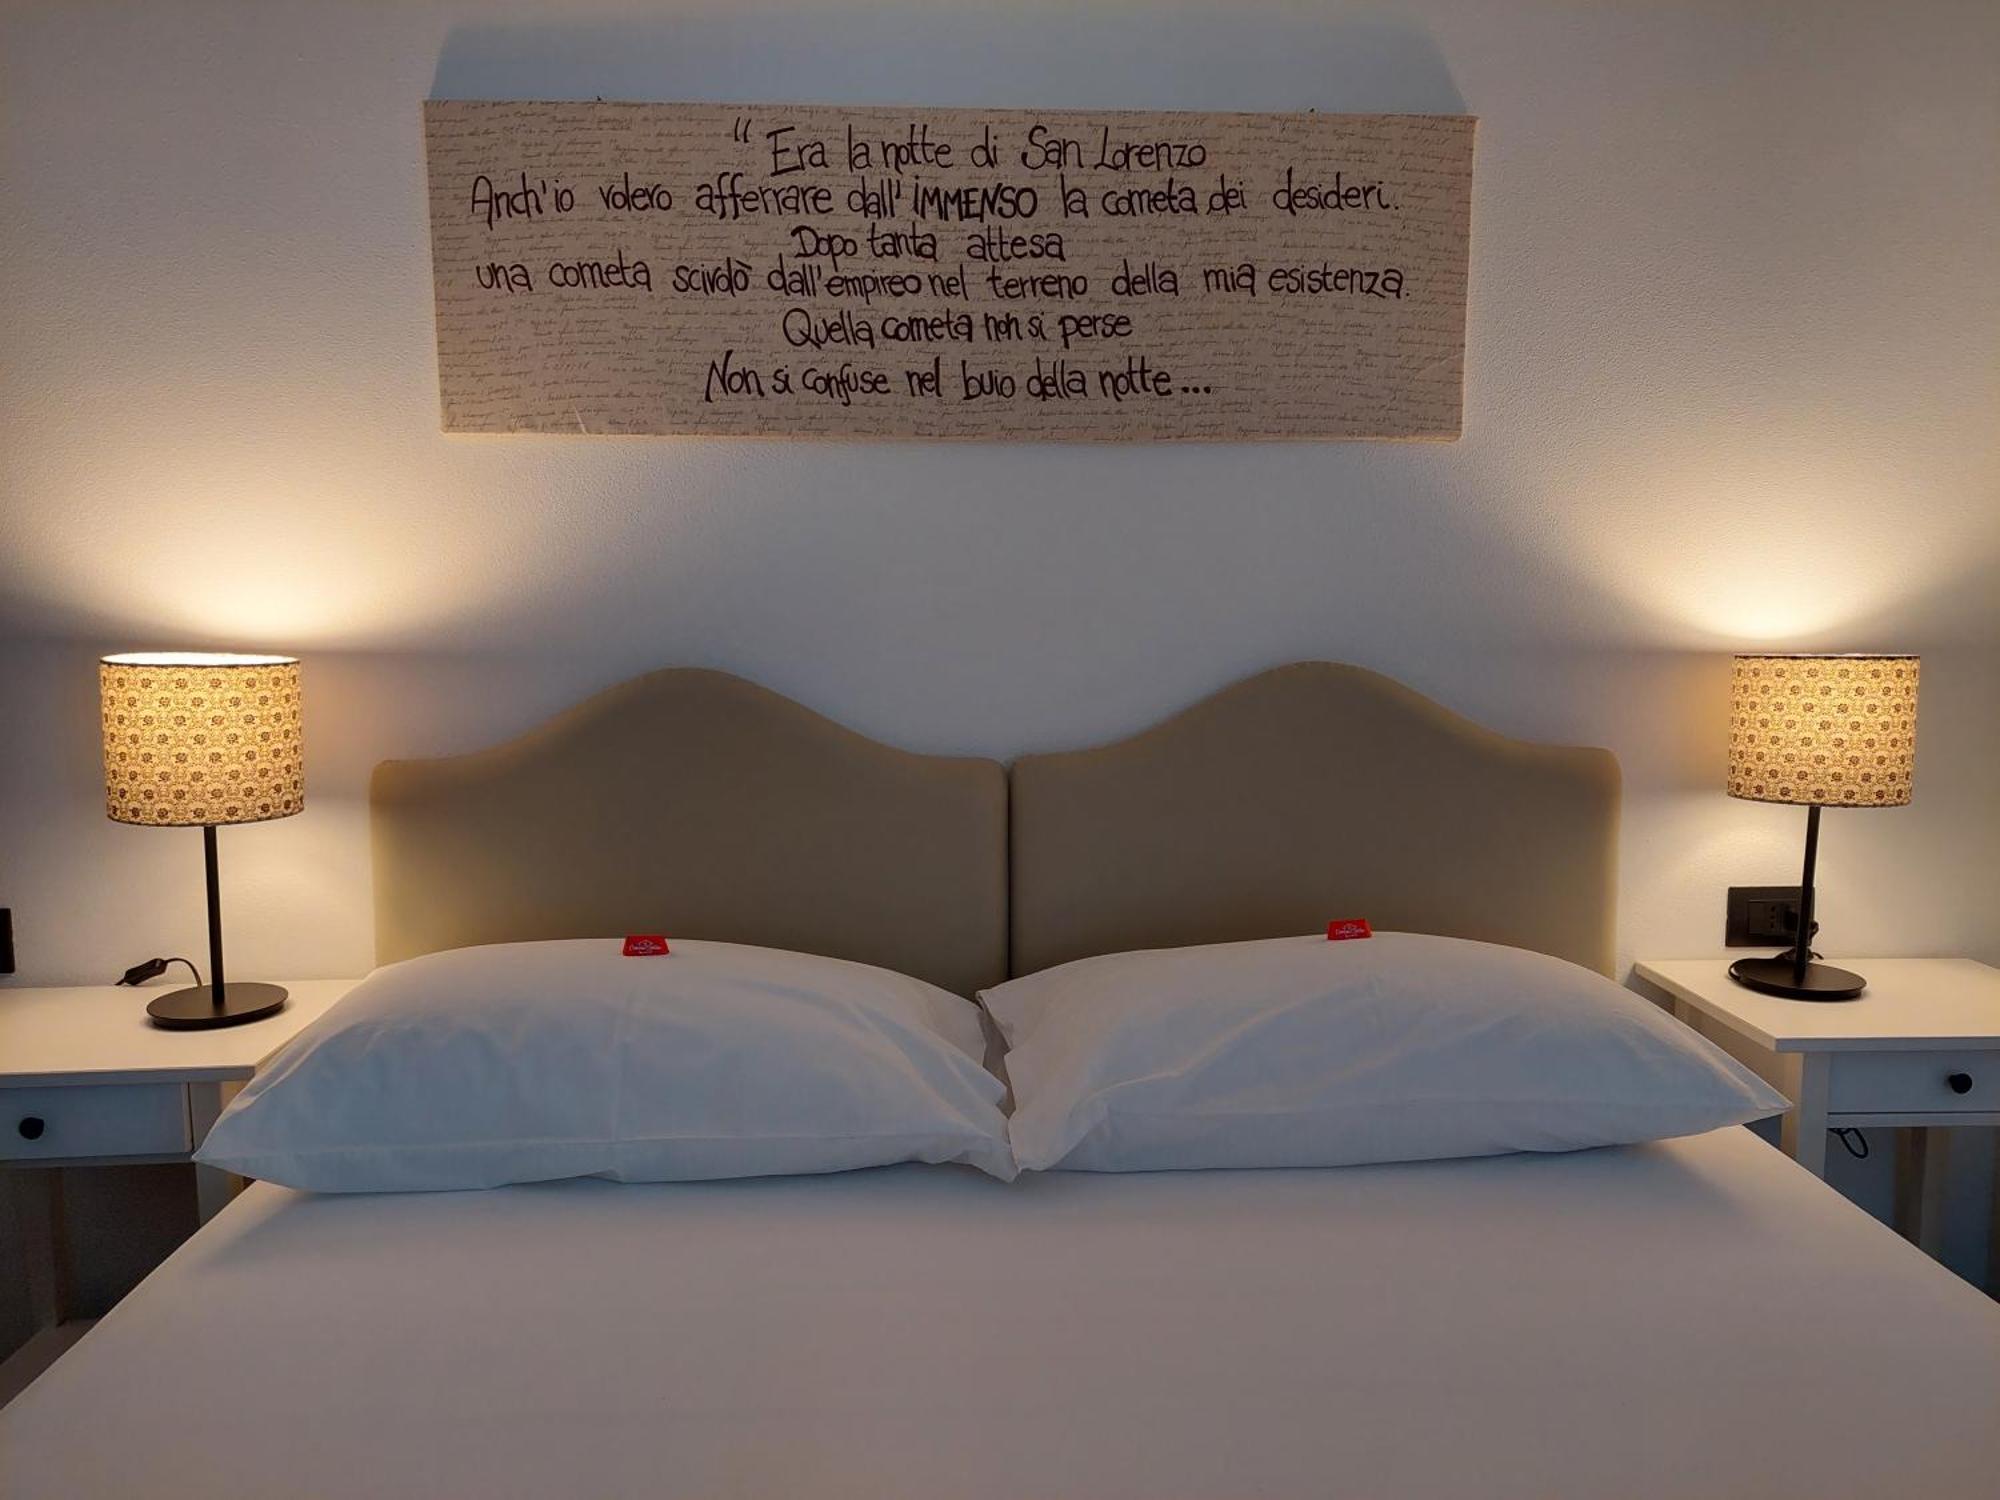 “ Era la notte di San Lorenzo
Anch'io volevo afferrare dall' IMMENSO la cometa dei desideri.
Dopo tanta attesa
una cometa scivolò dall'empireo nel terreno della mia esistenza.
Quella cometa non si perse
Non si confuse nel buio della notte...